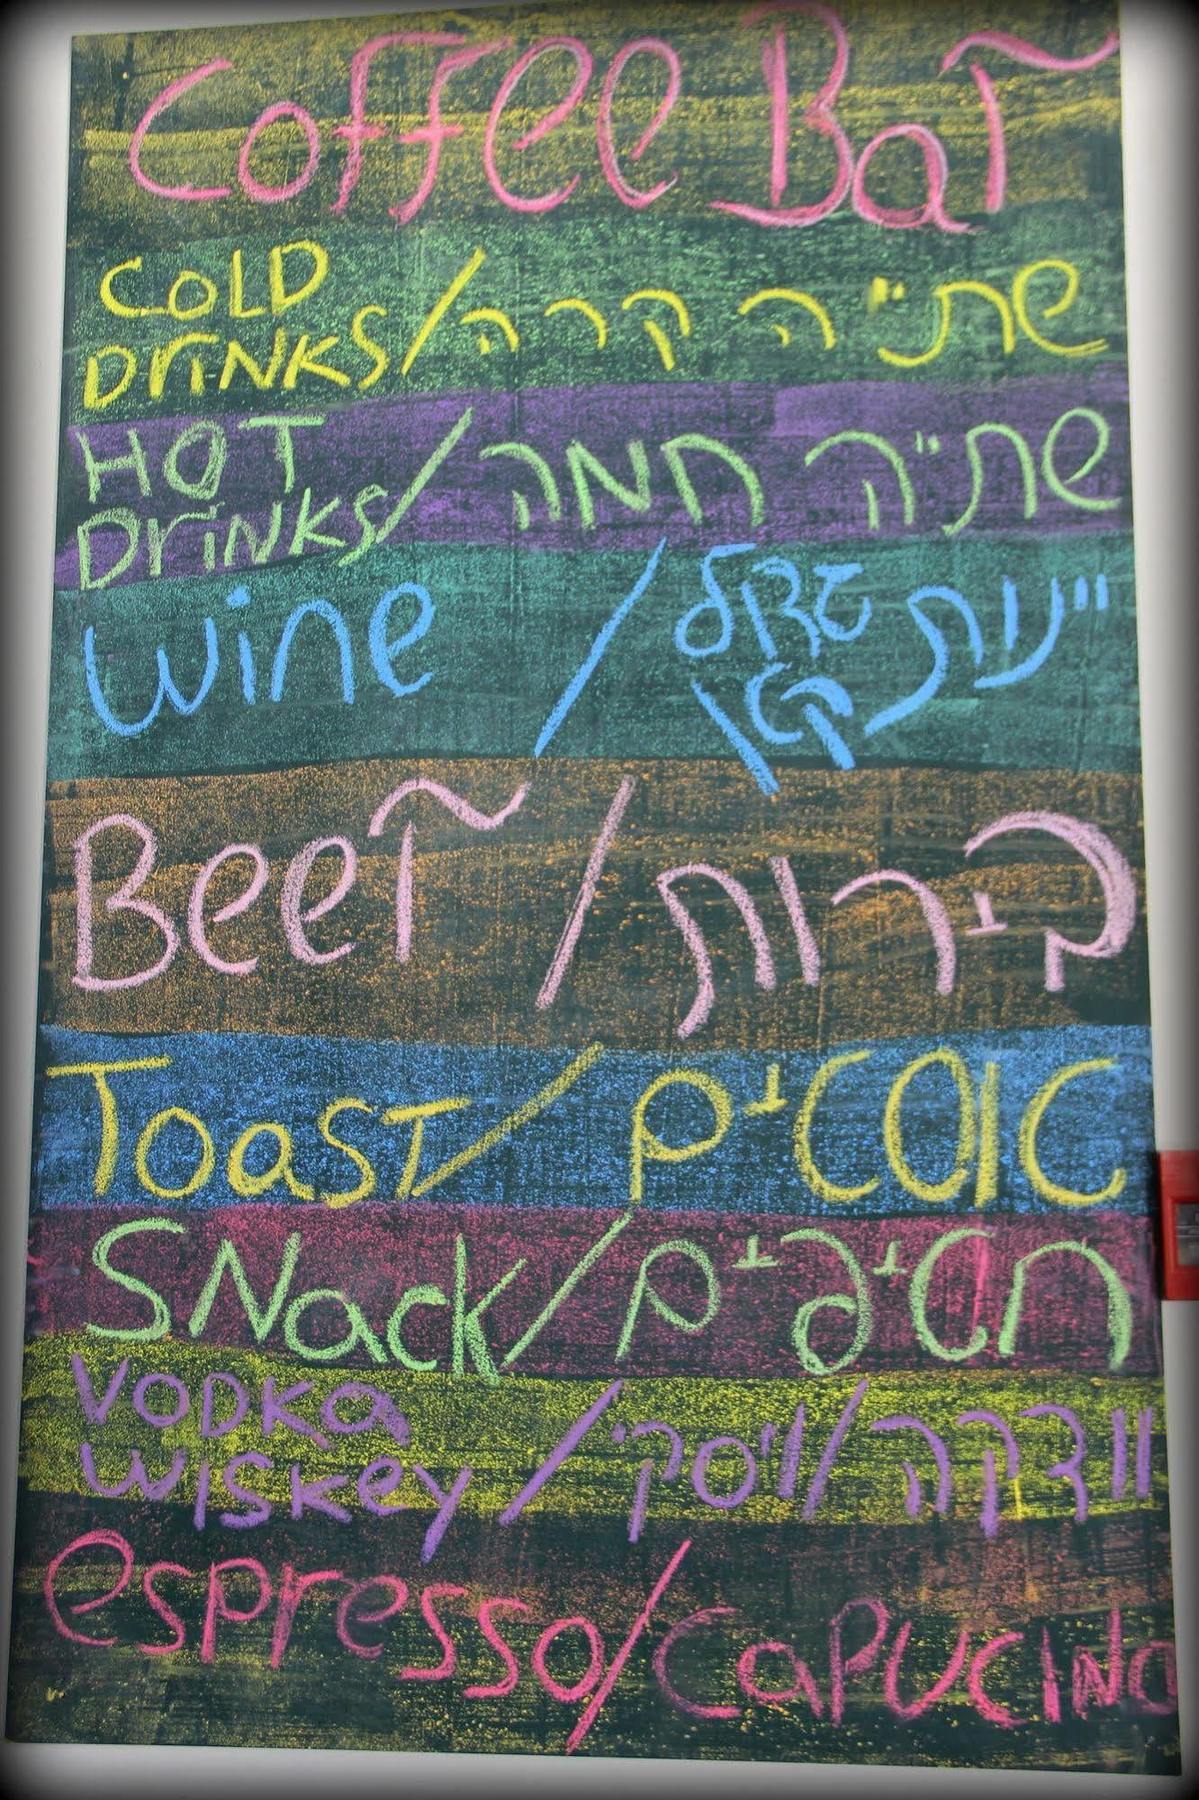 Coffee Bar
COLD
DrinKS / שתייה קרה
HOT
DrinKS / שתייה חמה
wine / יינות גדול
קטן
Beer / בירות
Toast / טוסטים
SNack / חטיפים
VODKa
WisKey / וודקה / ויסקי
espresso / CaPUCINO